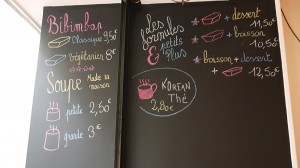 Bibimbap
Classique 9,5€
Végétarien 8€
Soupe Made in maison
petite 2,50€
grande 3€
Les formules
& petits Plus
+ dessert
11,50€
+ boisson
10,50€
boisson + dessert
+ 12,50€
KOREAN
Thé
2,80€